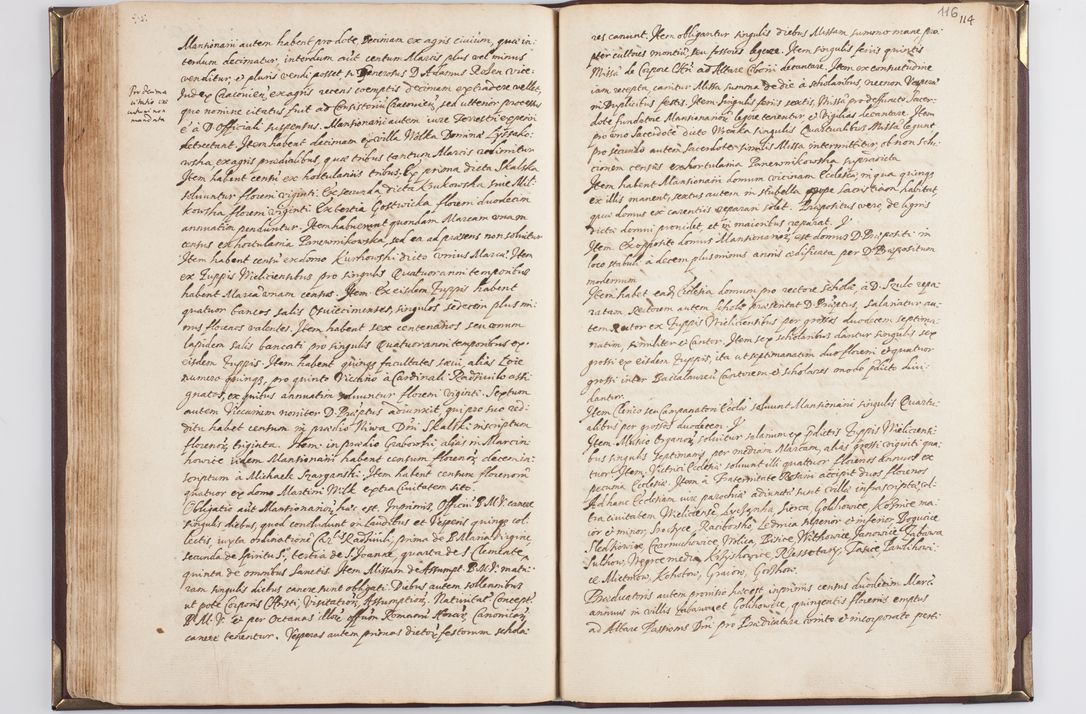 Mansionarii autem habent pro dote Decimam ex agris civium, quæ in:
terdum decimatur, interdum aut centum Marcis plus vel minus
venditur, et pluris vendi posset si Generosus D. Adamus Rosen Vice:
Pro decima
citatio ex
mandata
Iudex Cracovien̄ ex agris recens exemptis decimam extradere vellet,
quo nomine citatus fuit ad Consistorium Cracovien̄, sed ulterior processus
è à D. Officiali suspensus. Mansionarii autem iure Terrestri experiri
detrectant. Item habent decimam ex villa Wolka Domina Lyssako:
wska ex agris prædialibus, quæ tribus tantum Marcis redimitur
Item habent census ex hortulaniis tribus. Ex prima dicta Skalska
solvuntur floreni viginti. Ex secunda dicta Krukowska sive Mil:
kowska floreni viginti. Ex tertia Gostwicka floreni duodecim
annuatim penduntur. Item habuerunt quondam Marcam unam
census ex hortulania Panewnikowska, sed ea ad præsens non solvitur
Item habent censū ex domo Kurkowski dicto unius Marcæ. Item
ex Zuppis Wieliciensibus pro singulis Quatuor anni temporibus
habent Marcā unam census. Item Ex eisdem Zuppis habent
quatuor bancos salis Osviecimenses, singulos sedecim plus mi:
nus florenos valentes. Item habent sex centenarios seu unum
lapidem salis bancati pro singulis Quatuor anni temporibus ex
eisdem Zuppis. Item habent quinque facultates salis, alias Loie
numero quinque, pro quinto Vicario à Cardinali Radziwilo assi:
gnatos, ex quibus annuatim solvuntur floreni viginti. Septum
autem Vicarium noviter D. Præptus adiunxit, qui pro suo red:
ditu habet censum in prædio Niwa Dn̄i Skalski inscriptum
florenor̄ triginta. Item in prædio Grabowski alias in Marcin:
kowice iidem Mansionarii habent censum florenor̄ decem in:
scriptum à Michaele Szarganski. Item habent censum florenorū
quatuor ex domo Martini Wilk extra Civitatem sitā.
Obligatio aūt Mansionarior̄ hæc est. Inprimis, Officiū B.M.V. canere
singulis diebus, quod concludunt in Laudibus et Vesperis quinque col:
lectis, iuxta ordinationē Radzivili, prima de B. Maria Virgine,
secunda de Spiritu S., tertia de S. Ioanne, quarta de S. Clemente,
quinta de omnibus Sanctis. Item Missam de Assumpt. B.M.V. matu:
ram singulis diebus canere sunt obligati. Diebus autem sollennibus
ut pote Corporis Christi, Visitation̄, Assumption̄, Nativitat̄ Concept̄
B.M.V. et per Octavas illor̄ offum Romanū Horar̄ Canonicar̄
canere tenentur. Vesperas autem primas dictor̄ festorum schola:

116 114
res canunt. Item obligantur singulis diebus Missam summo mane pro:
pter cultores montiū seu fossores legere. Item singulis feriis quintis
Missā de Corpore Chr̄i ad Altare Ciborii decantare. Item ex consvetudine
iam recepta, canitur Missa summa de die à scholaribus, necnon Vesperæ
in Duplicibus festis. Item singulis feriis sextis, Missā pro defuncto Sacer:
dote fundatore Mansionarior̄ legere tenentur, et Vigilias decantare. Item
pro uno Sacerdote dicto Wronka singulis Quartualibus Missā legunt
pro secundo autem Sacerdote similis Missa intermittitur, ob non solu:
cionem census ex hortulania Panewnikowska supradicta
Item habent Mansionarii domum vicinam Ecclesiæ, in qua quinque
ex illis manent, sextus autem in stubella prope Sacristiam habitat
quæ domus ex carentiis reparari solet. Præpositus vero, de lignis
dictæ domui providet, et in maioribus reparat.
Item Ex opposito domus Mansionarior̄, est domus D. Præpositi in
loco stabuli à decem plus minus annis ædificata per D. Præpositum
modernum.
Item habet ead̄ Ecclesia domum pro rectore Scholæ à D. Szulc repa:
ratam. Rectorem autem Scholæ præsentat D. Præptus, salariatur au:
tem Rector ex Zuppis Wieliciensibus per grossos duodecem septima:
natim, similiter et Cantor. Item sex scholaribus dantur singulis sex
grossi ex eisdem Zuppis, ita ut septimanatim duo floreni et quatuor
grossi inter Baccalaureū Cantorem et scholares modo p̄dicto divi:
dantur.
Item Clerico seu Campanatori Eccliæ solvunt Mansionarii singulis Quartu:
alibus per grossos duodecem.
Item. Musico Organor̄, solvitur salarium ex p̄dictis Zuppis Wielicensi:
bus singulis Septimanis per mediam Marcam, alias grossi viginti qua:
tuor. Item, Victrici Ecclesiæ solvunt illi quatuor florenos annuos ex
pecunia Ecclesiæ. Item à Fraternitate Rosarii accipit duos florenos
Ad hanc Ecclesiam iure parochiæ adiunctæ sunt villæ infrascriptæ, ex:
tra civitatem Wieliciensē Lyssanka, Siercza Golkowice, Kosznice ma:
ior et minor, Srockice, Raciborsko, Lednica superior et inferior, Bogucice
Sledziowice, Czarnuchowice, Wolica, Biszice, Witkowice, Janowice, Zabawa
Sulkow, Wegrce media, Kozyskowice Przesietary, Tasice, Pawlikowi:
ce Mietniow, Kokotow, Graiow, Gorzkow.
Prædicatoris autem provisio hæc est inprimis census duodecim Marcæ
annuus in villis Zabawa et Golkowice, quingentis florenis emptus
ad Altare Passionis Dn̄i pro Prædicatura unito et incorporato perti: